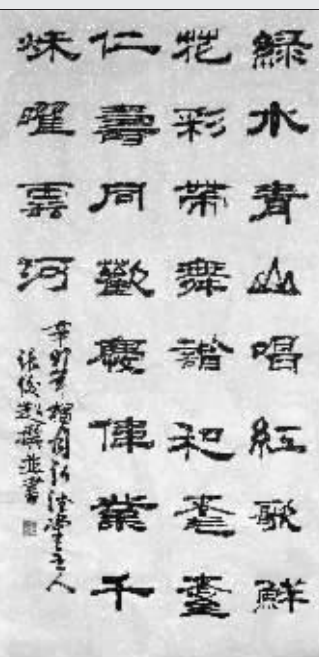 綠水青山唱紅歌鮮
花彩帶舞諧和耄耋
仁壽同歡慶偉業千
秌曜雲河
辛卯堂主人
張俊撰並書